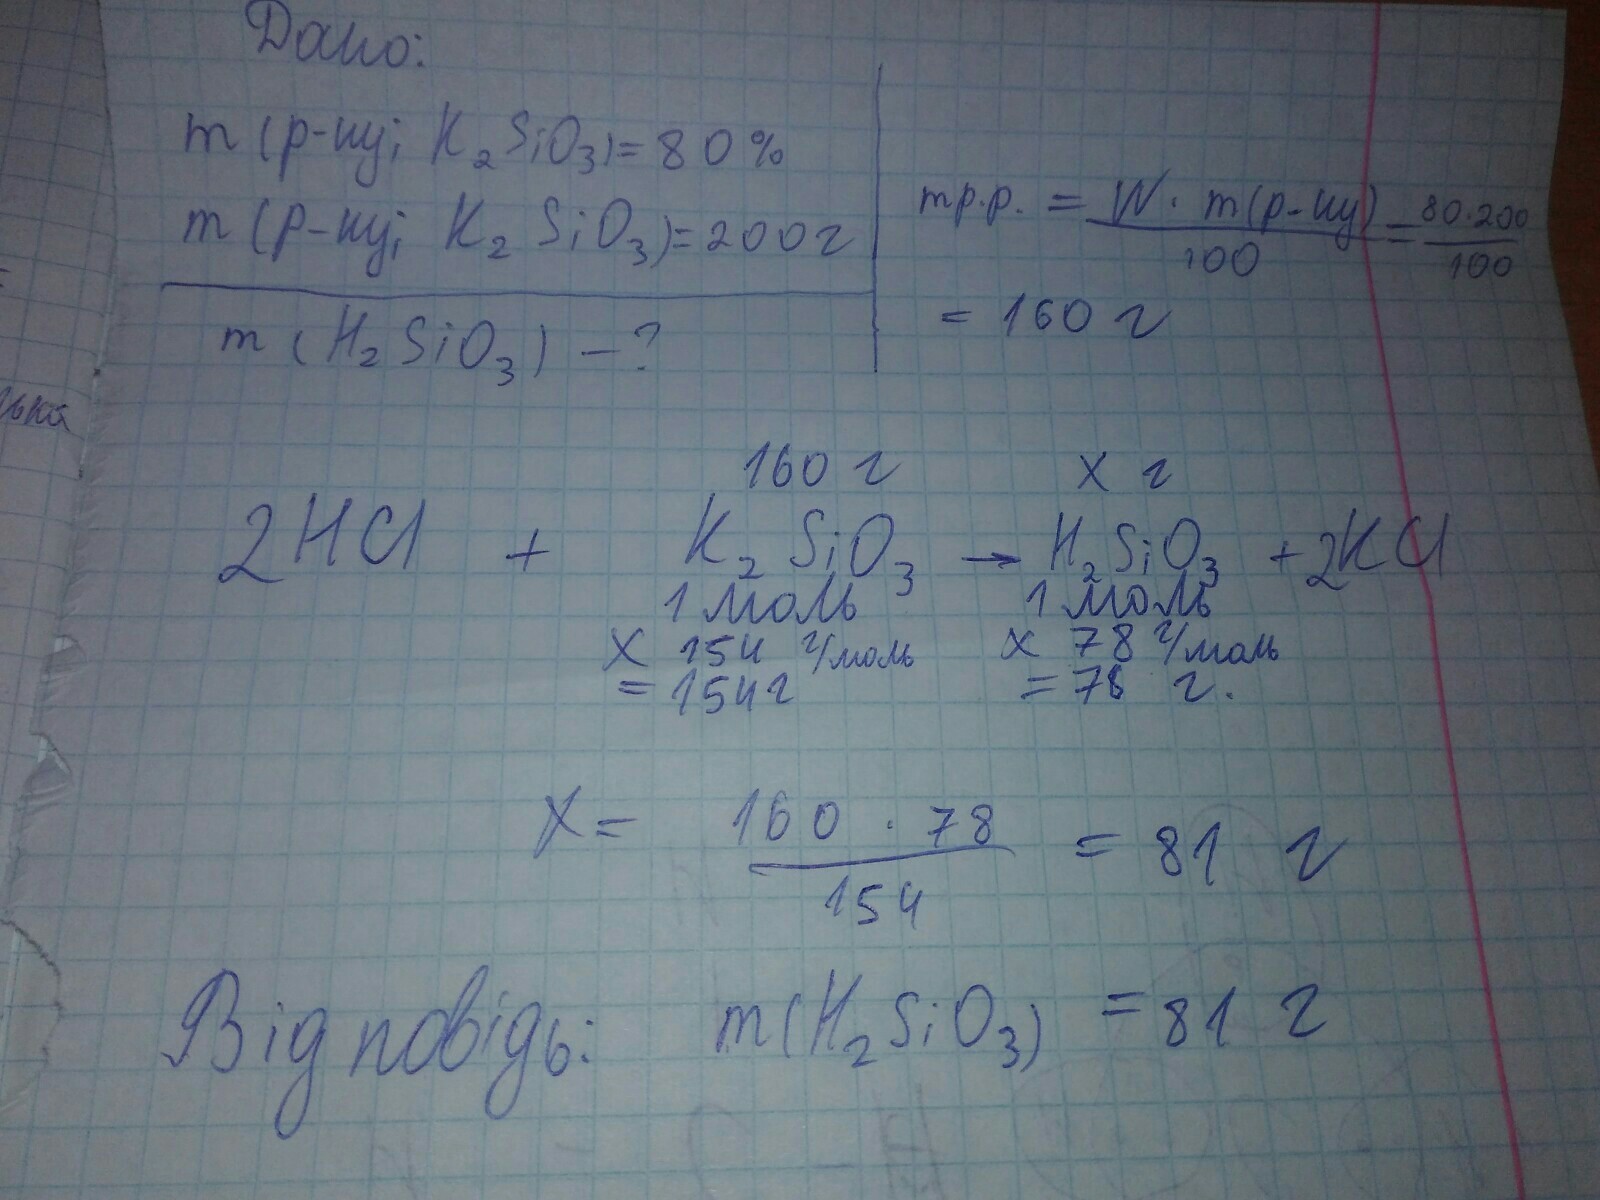 Дано:
m (р-ну; K₂SiO₃) = 80%
m (р-ну; K₂SiO₃) = 200 г
m (H₂SiO₃) – ?
mр.р. = W · m(р-ну) / 100 = 80·200 / 100
= 160 г
160 г x г
2HCl + K₂SiO₃ → H₂SiO₃ + 2KCl
1 моль 1 моль
x 154 г/моль x 78 г/моль
= 154 г = 78 г.
X = 160 · 78 / 154 = 81 г
Відповідь: m(H₂SiO₃) = 81 г